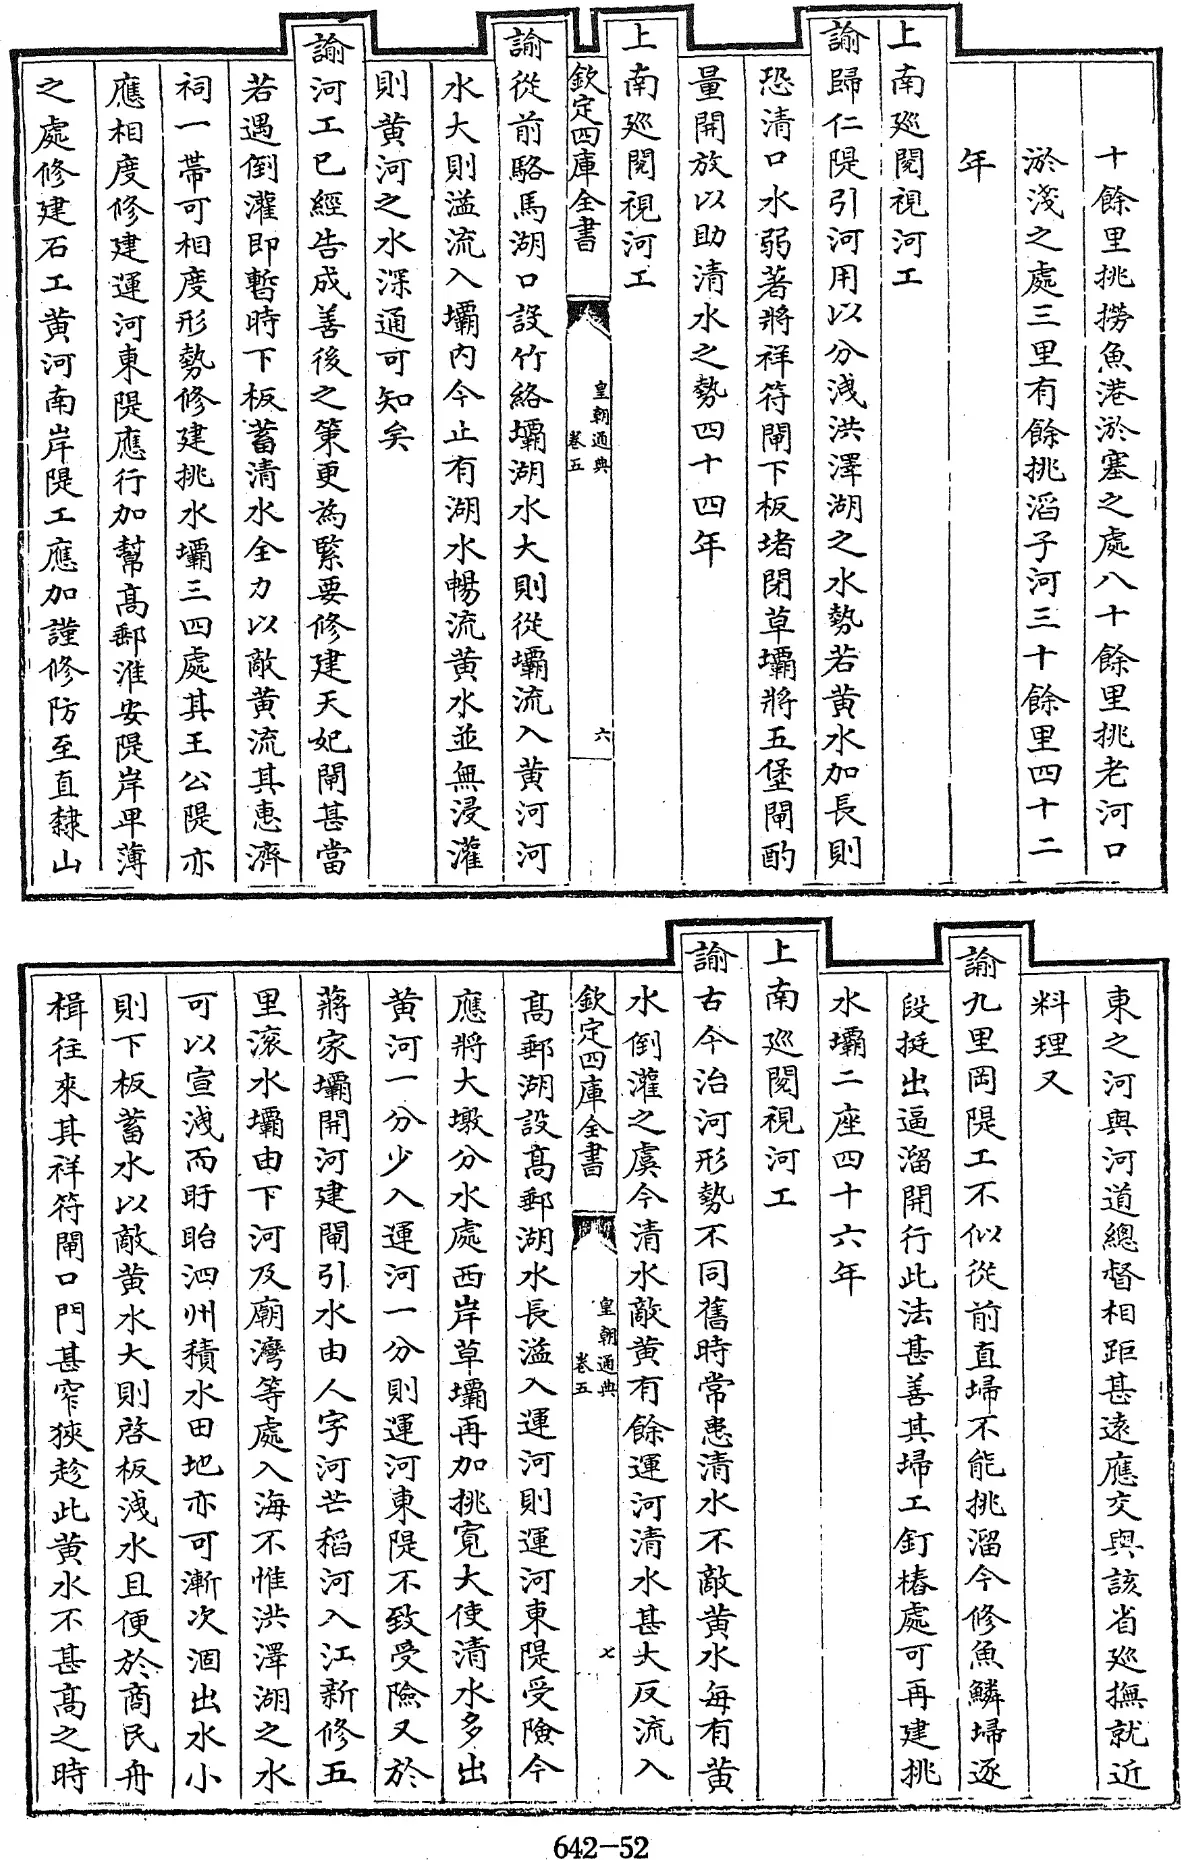 十餘里挑撈魚港淤塞之處八十餘里挑老河口
淤淺之處三里有餘挑滔子河三十餘里四十二
年
上南廵閱視河工
諭歸仁隄引河用以分洩洪澤湖之水勢若黄水加長則
恐清口水弱著將祥符閘下板堵閉草壩將五堡閘酌
量開放以助清水之勢四十四年
上南廵閱視河工
欽定四庫全書
皇朝通典
卷五
六
諭從前駱馬湖口設竹絡壩湖水大則從壩流入黄河河
水大則溢流入壩内今止有湖水暢流黄水並無浸灌
則黄河之水深通可知矣
諭河工已經告成善後之策更為緊要修建天妃閘甚當
若遇倒灌即暫時下板蓄清水全力以敵黄流其惠濟
祠一帶可相度形勢修建挑水壩三四處其王公隄亦
應相度修建運河東隄應行加幫髙郵淮安隄岸卑薄
之處修建石工黄河南岸隄工應加謹修防至直隸山
東之河與河道總督相距甚遠應交與該省廵撫就近
料理又
諭九里岡隄工不似從前直埽不能挑溜今修魚鱗埽逐
段挺出逼溜開行此法甚善其埽工釘樁處可再建挑
水壩二座四十六年
上南廵閱視河工
諭古今治河形勢不同舊時常患清水不敵黄水每有黄
水倒灌之虞今清水敵黄有餘運河清水甚大反流入
欽定四庫全書
皇朝通典
卷五
七
髙郵湖設髙郵湖水長溢入運河則運河東隄受險今
應將大墩分水處西岸草壩再加挑寛大使清水多出
黄河一分少入運河一分則運河東隄不致受險又於
蔣家壩開河建閘引水由人字河芒稻河入江新修五
里滚水壩由下河及廟灣等處入海不惟洪澤湖之水
可以宣洩而盱眙泗州積水田地亦可漸次涸出水小
則下板蓄水以敵黄水大則啓板洩水且便於商民舟
楫往來其祥符閘口門甚窄狹趁此黄水不甚髙之時
642-52